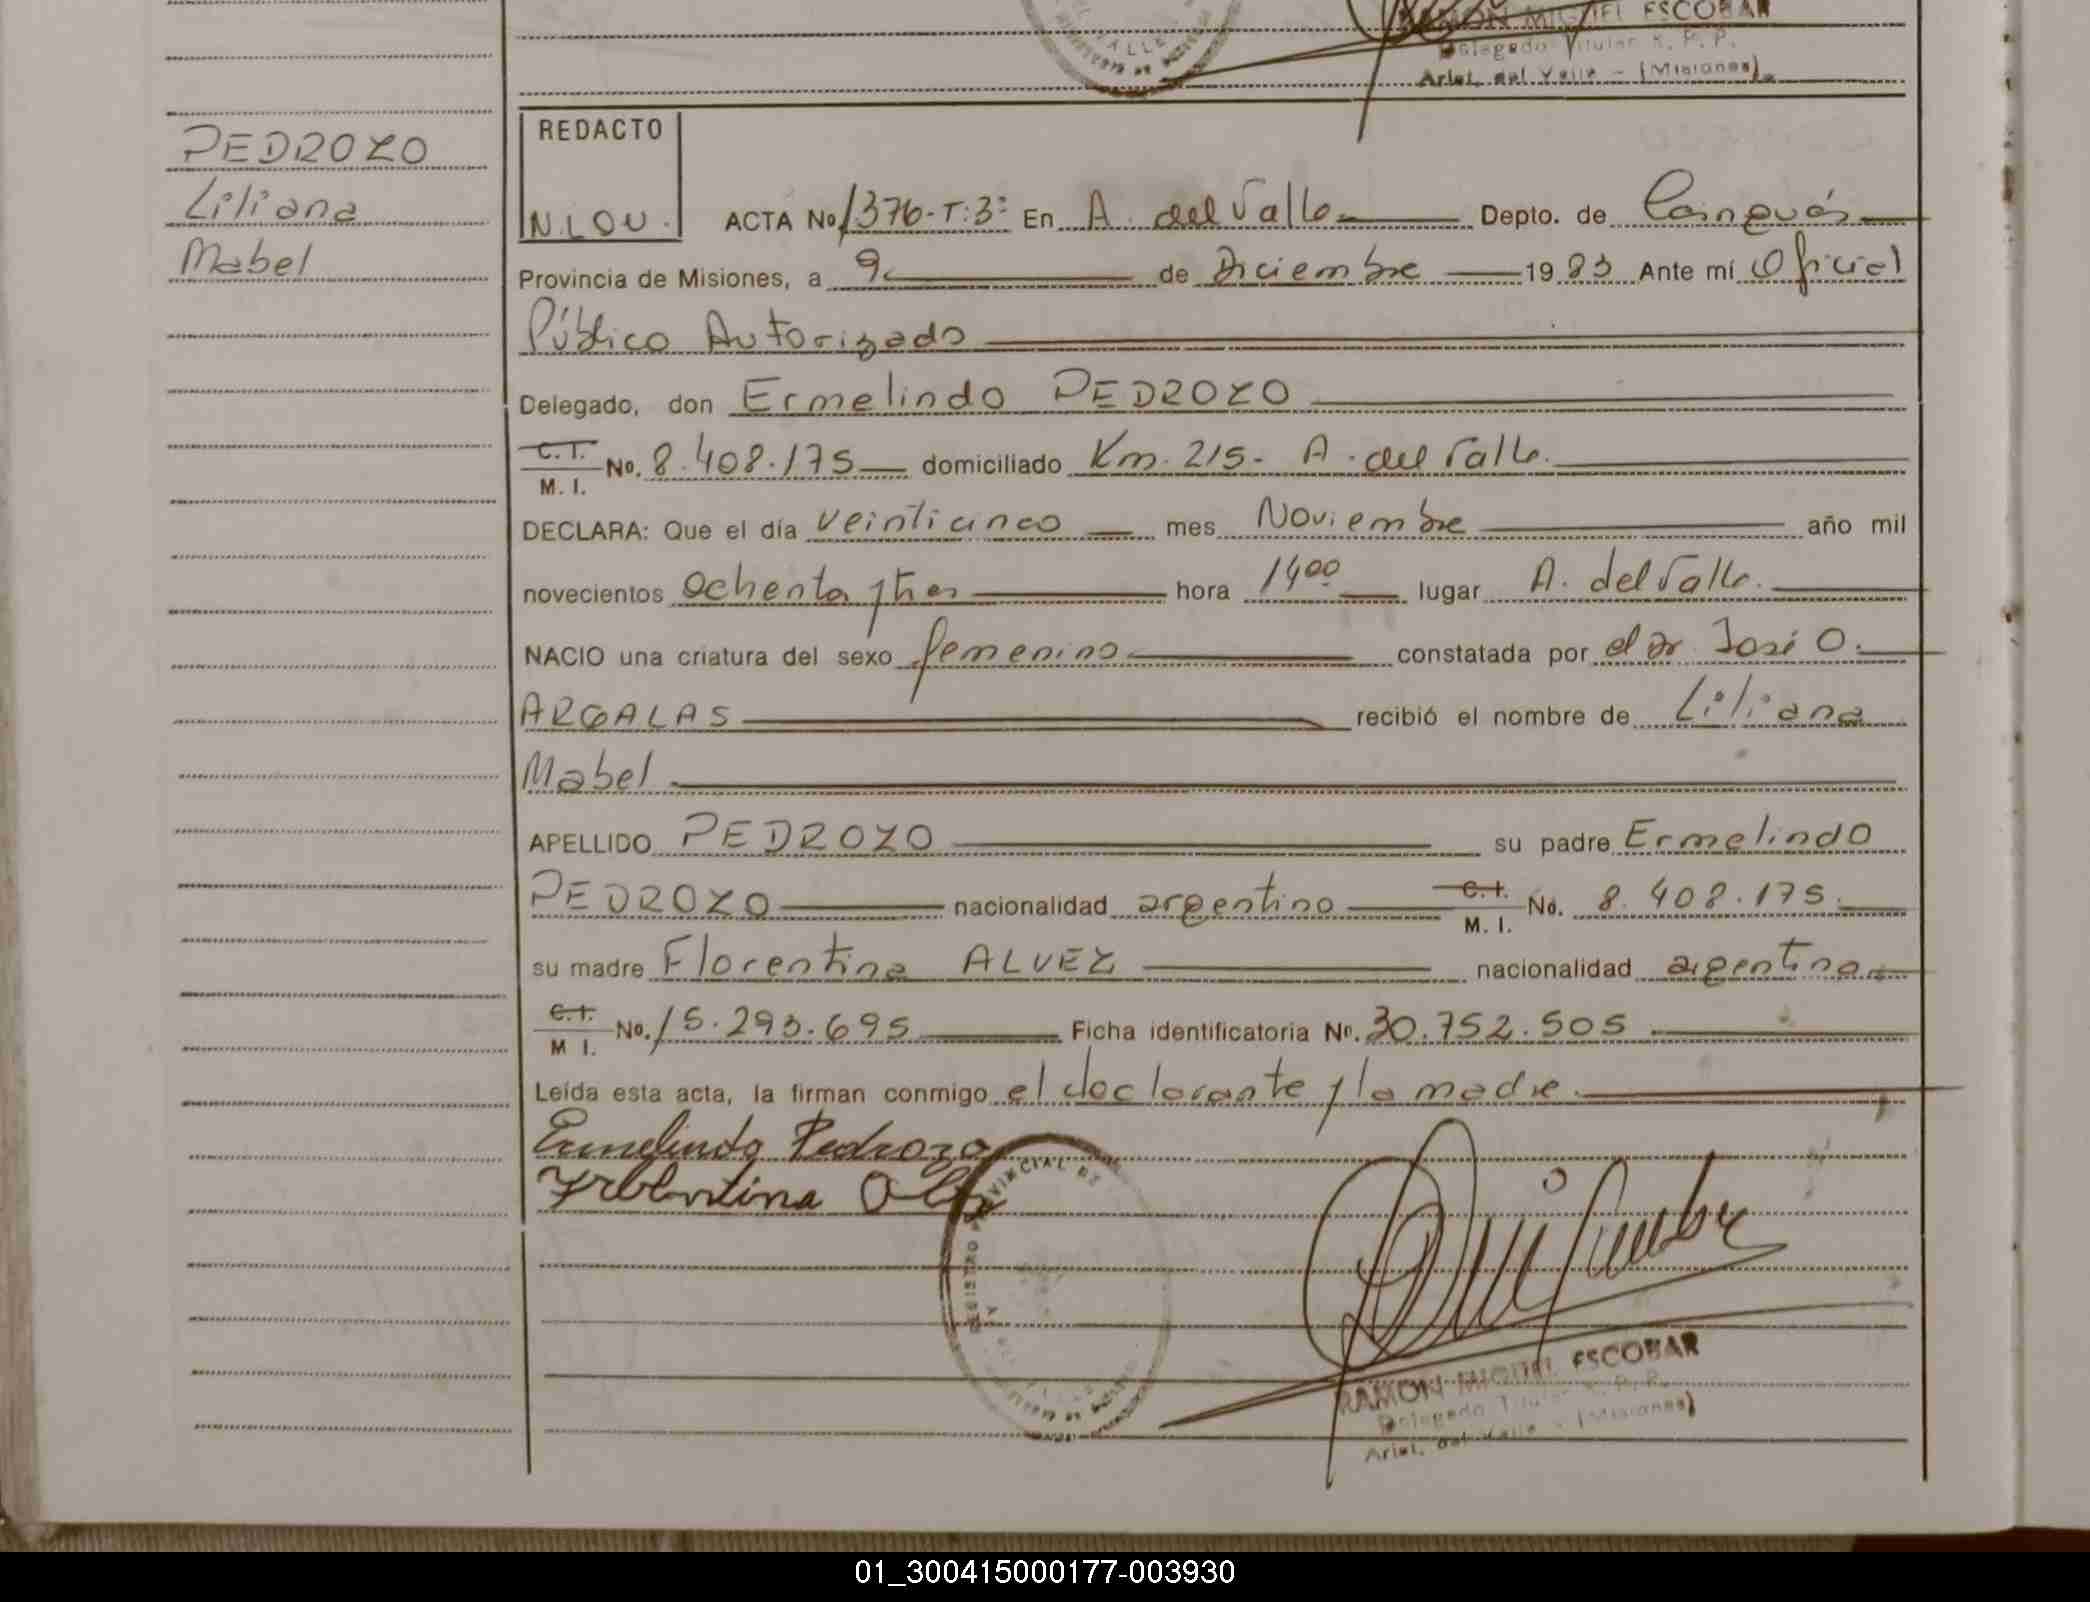 RAMON MIGUEL ESCOBAR
Delegado Titular R. P. P.
Arist. del Valle - (Misiones)
PEDROZO
Liliana
Mabel
REDACTO
N.LOU.
ACTA No 1376-T:3º En A. del Valle Depto. de Cainguás
Provincia de Misiones, a 9 de Diciembre 1983 Ante mí Oficial
Público Autorizado
Delegado, don Ermelindo PEDROZO
C.I.
M. I. No. 8.408.175 domiciliado Km. 215- A. del Valle.
DECLARA: Que el día veinticinco mes Noviembre año mil
novecientos ochenta y tres hora 1400 lugar A. del Valle.
NACIO una criatura del sexo femenino constatada por el Dr José O.
ARGALAS recibió el nombre de Liliana
Mabel
APELLIDO PEDROZO su padre Ermelindo
PEDROZO nacionalidad argentino C.I. M. I. No. 8.408.175.
su madre Florentina ALVEZ nacionalidad argentina
C.I. M I. No. 15.293.695 Ficha identificatoria Nº. 30.752.505
Leída esta acta, la firman conmigo el declarante y la madre.
Ermelindo Pedrozo
REGISTRO PROVINCIAL DE
RAMON MIGUEL ESCOBAR
Delegado Titular R. P. P.
Arist. del Valle - (Misiones)
01_300415000177-003930